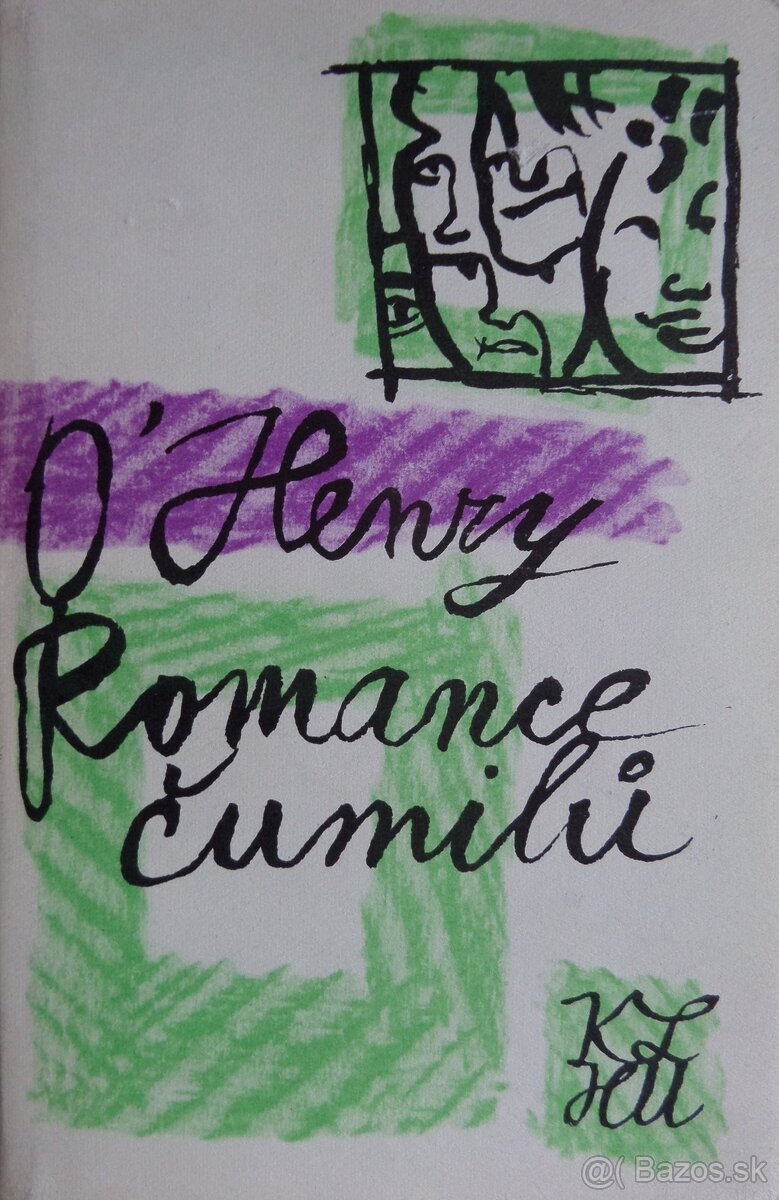 O'Henry
Romance
čumilů
KL
HU
@( Bazos.sk